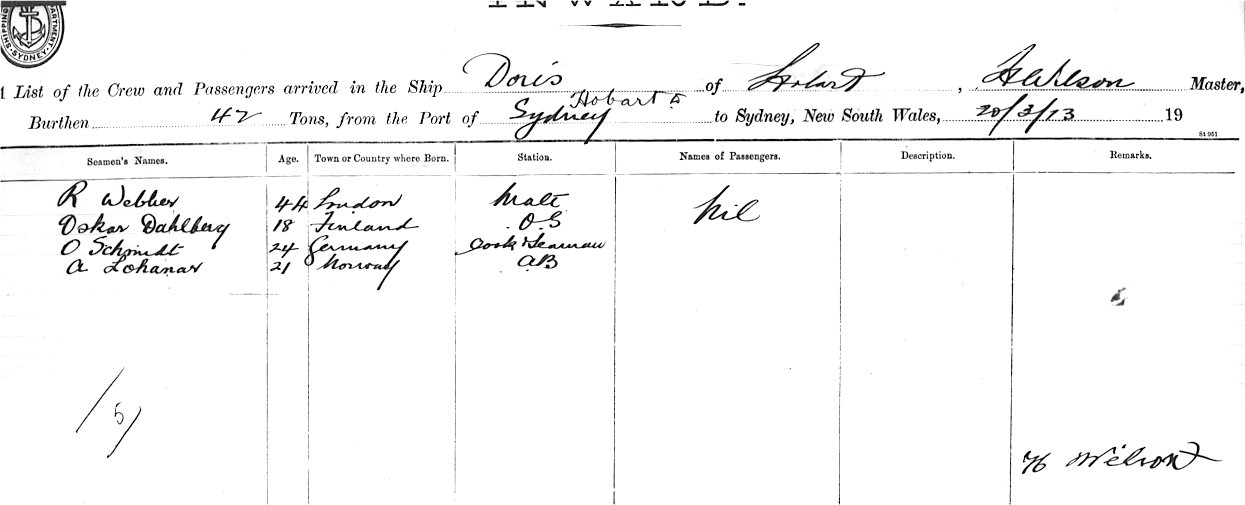 INWARD.
SHIPPING DEPARTMENT SYDNEY
List of the Crew and Passengers arrived in the Ship Doris of Hobart, H Wilson Master,
Burthen 42 Tons, from the Port of Sydney Hobart to Sydney, New South Wales, 20/3/13 19
St 951
Seamen's Names. Age. Town or Country where Born. Station. Names of Passengers. Description. Remarks.
R Webber 44 London Mate Nil
Oskar Dahlberg 18 Finland O.S
O Schmidt 24 Germany Cook & Seaman
A 21 Norway AB
/5/
H Wilson